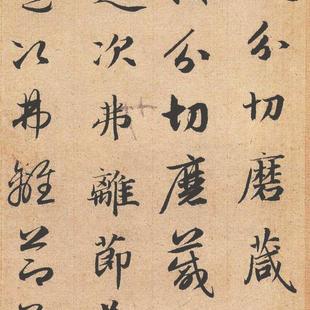 分切磨箴
分切磨箴
次弗離節
次弗離節